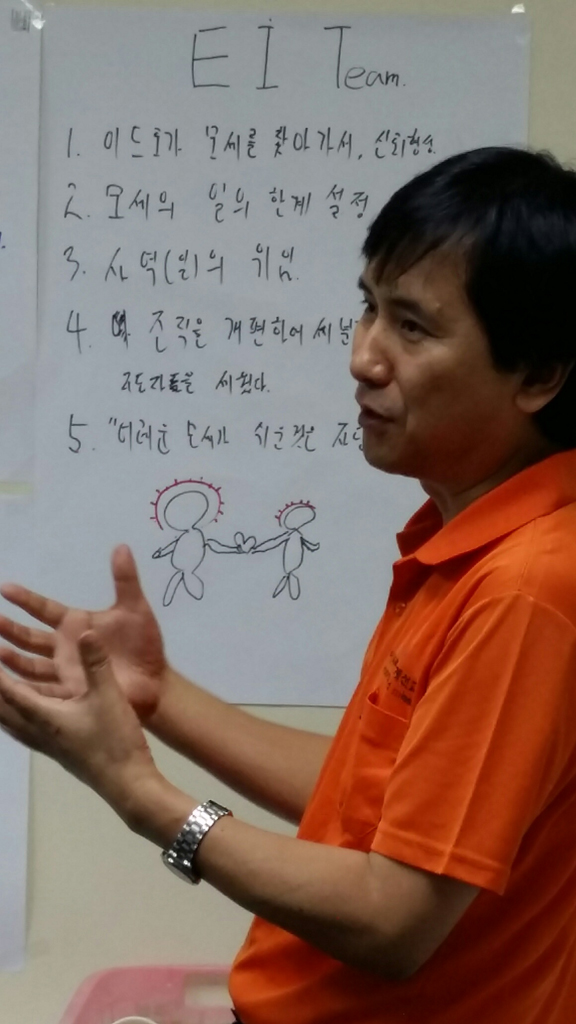 EI Team.
1. 이드로가 모세를 찾아가서, 신뢰형성
2. 모세의 일의 한계 설정
3. 사역(일)의 위임.
4. 조직을 개편하여 세분
지도자들을 세웠다.
5.